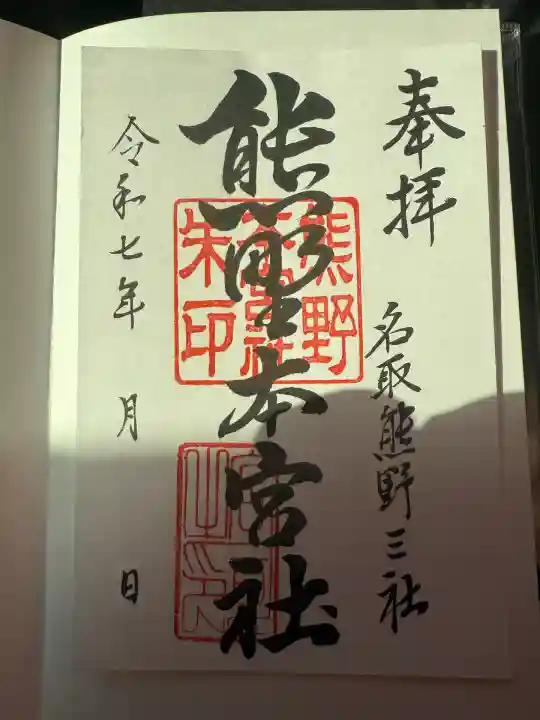 奉拝
名取熊野三社
熊野本宮社
令和七年 月 日
熊野
朱印